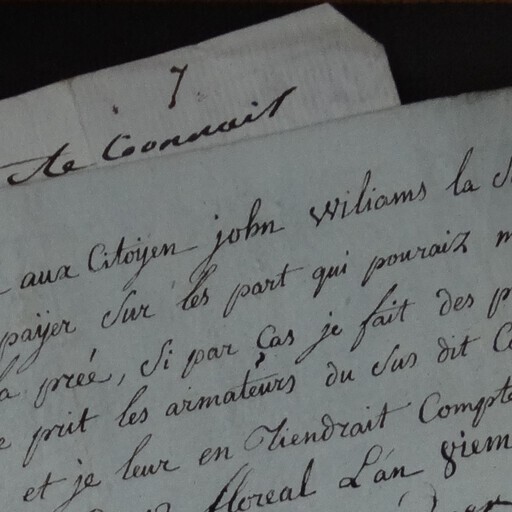 7
aux Citoyen john Wiliams la
payer Sur les part qui pouraiz
preé, Si par Cas je fait des
prit les armateurs du Sus dit
et je leur en Tiendrait Compte
floreal L'án 8iem